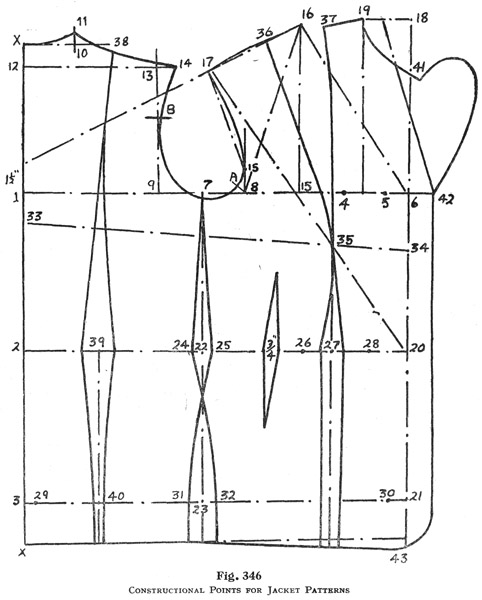 11
16
37
19
18
X
38
36
10
12
13
14
17
41
B
15
A
1½"
1
9
7
8
15
4
5
6
42
33
35
34
39
24
22
25
¾"
26
27
28
20
2
3
29
40
31
32
23
30
21
X
43
Fig. 346
Constructional Points for Jacket Patterns